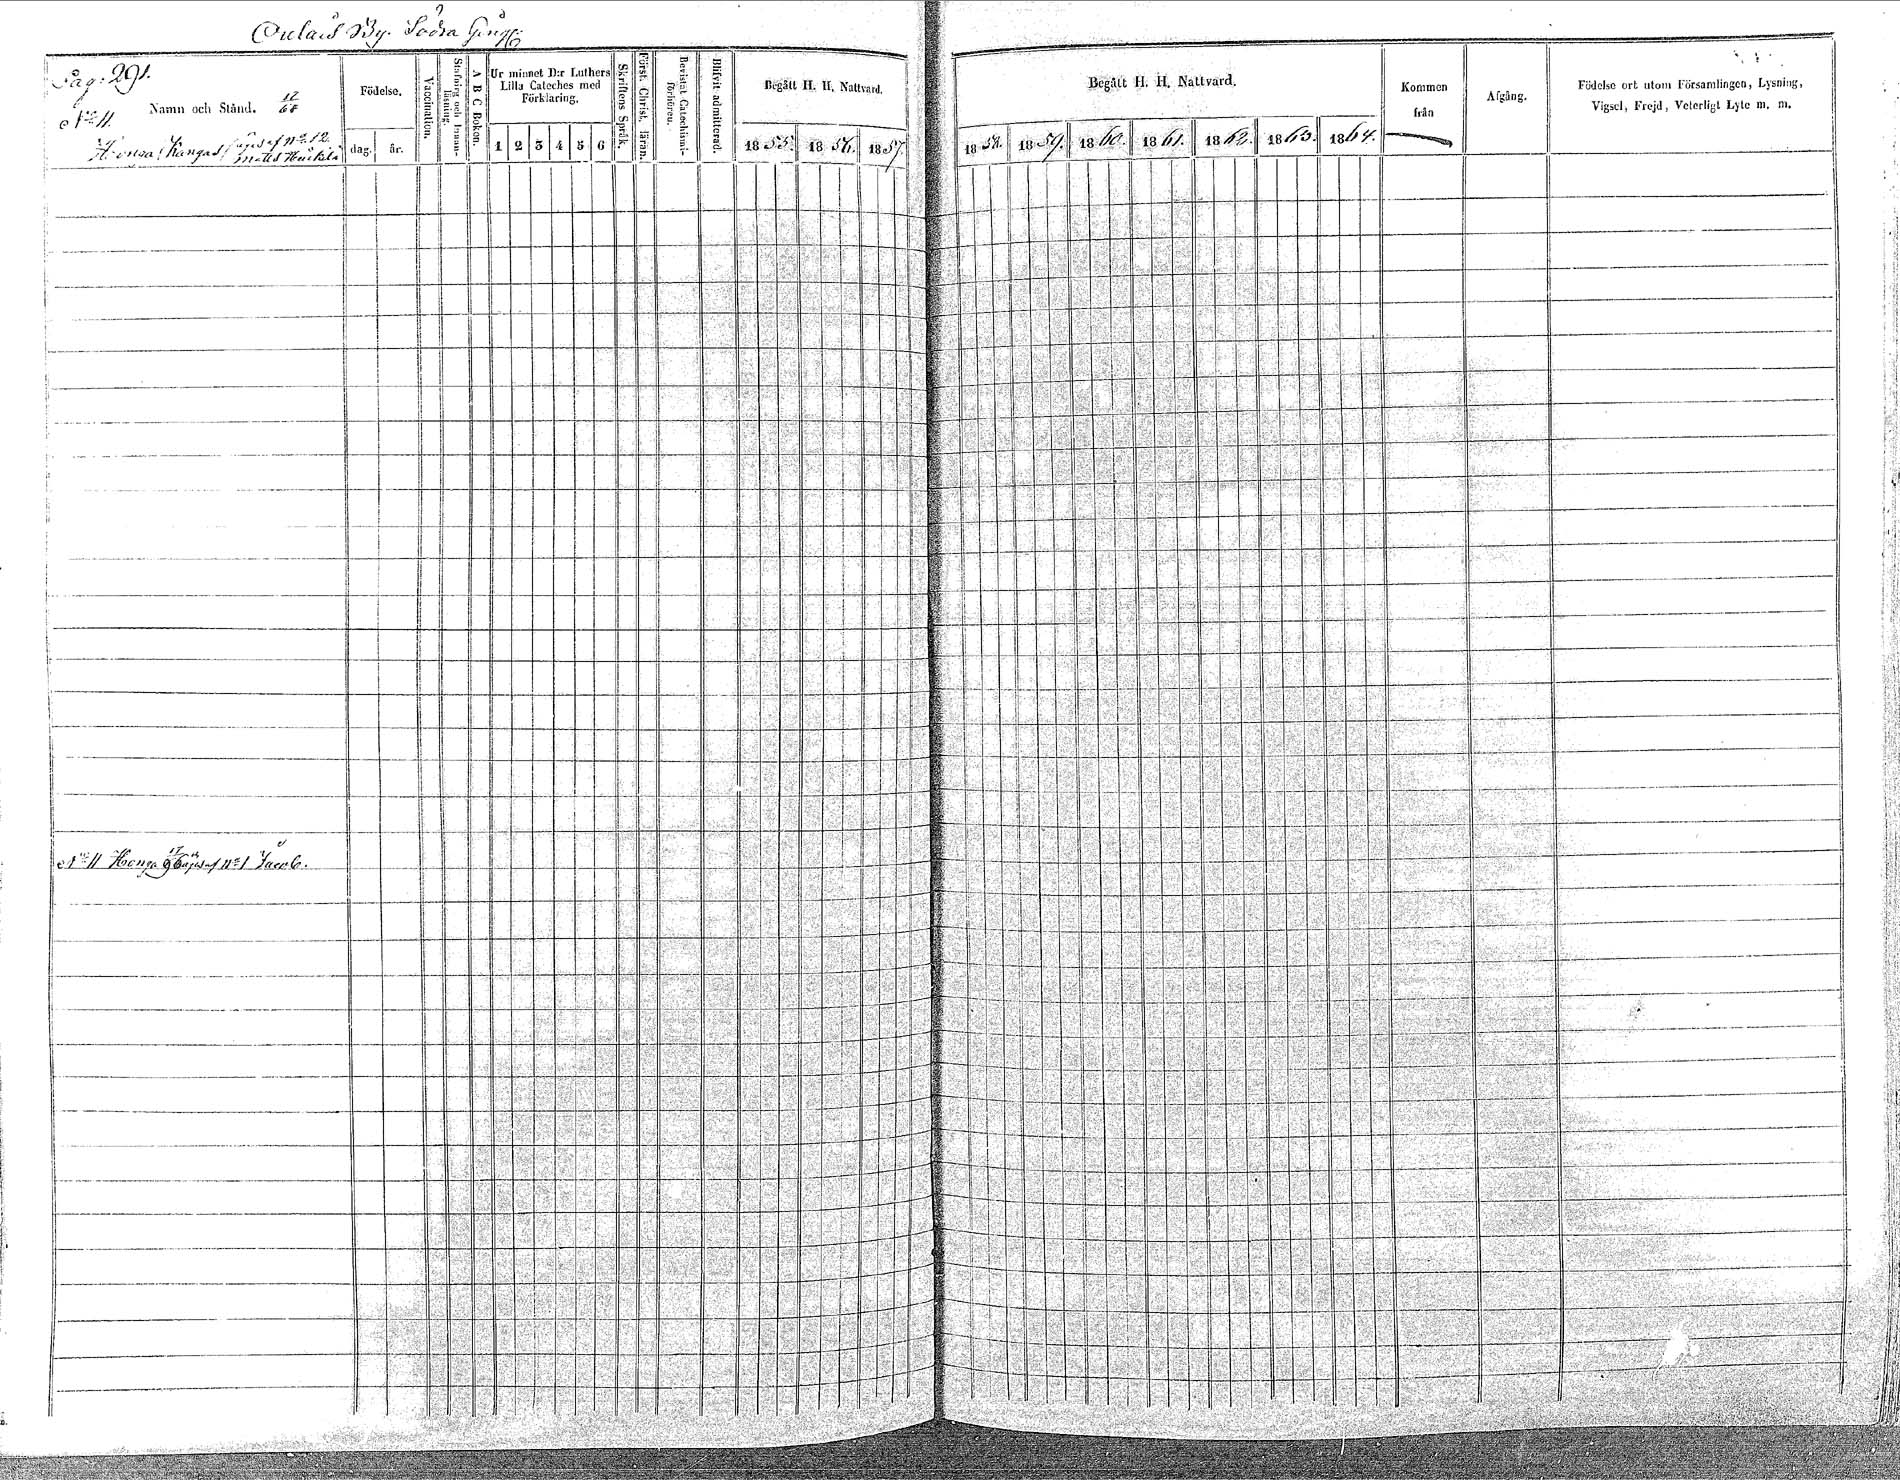 Oulais By. Södra Gång.
Pag: 291.
Namn och Stånd. 17/68
No 11.
Honga (Kangas) äges af No 12.
Matts Heikkilä
Födelse.
dag. år.
Vaccination.
Stafning och Innan-läsning.
A B C Boken.
Ur minnet D:r Luthers
Lilla Cateches med
Förklaring.
1 2 3 4 5 6
Skriftens Språk.
Först. Christ. läran.
Bevistat Catechismi-förhören.
Blifvit admitterad.
Begått H. H. Nattvard.
1855. 1856. 1857.
Begått H. H. Nattvard.
1858. 1859. 1860. 1861. 1862. 1863. 1864.
Kommen
från
Afgång.
Födelse ort utom Församlingen, Lysning,
Vigsel, Frejd, Veterligt Lyte m. m.
No 11 Honga äges af No 1 Jacob.